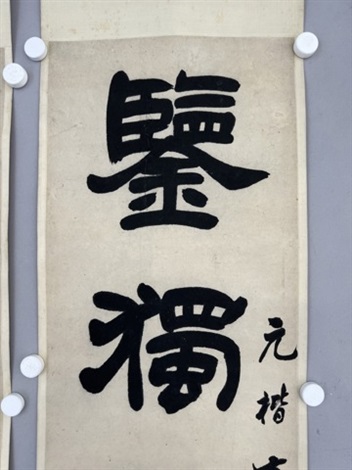 鑒獨
元楷